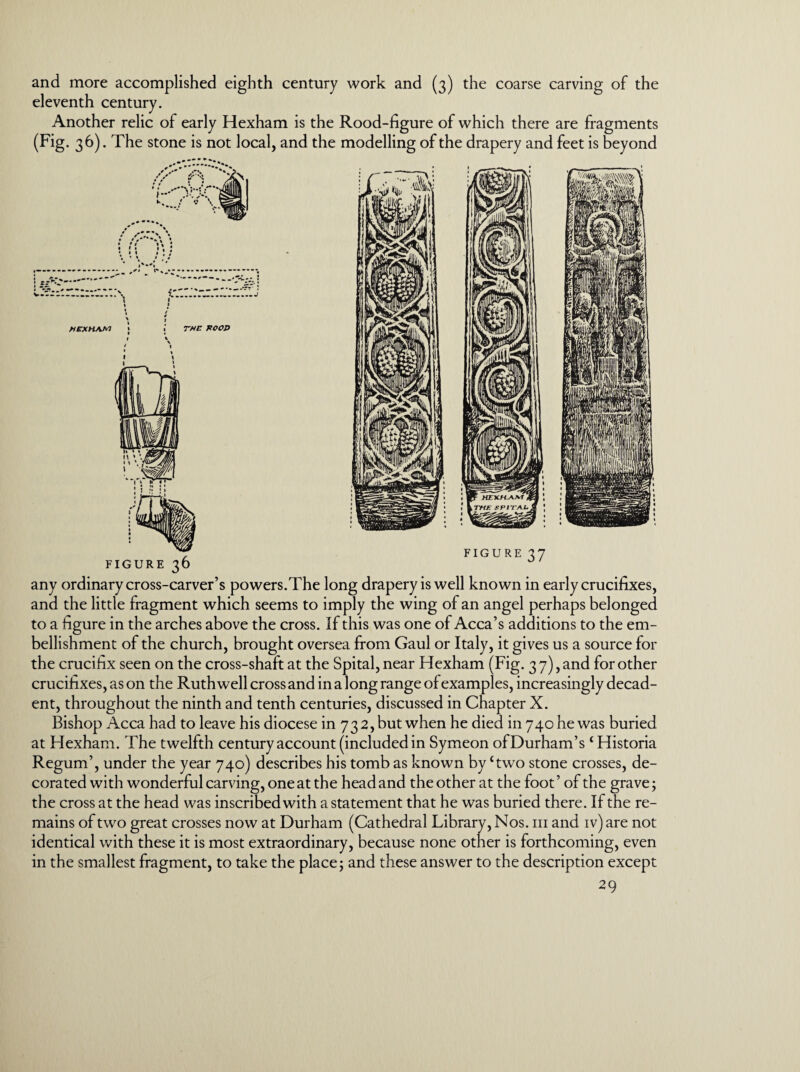 and more accomplished eighth century work and (3) the coarse carving of the
eleventh century.
Another relic of early Hexham is the Rood-figure of which there are fragments
(Fig. 36). The stone is not local, and the modelling of the drapery and feet is beyond
HEXHAM
THE ROOD
HEXHAM
THE SPITAL
FIGURE 36
FIGURE 37
any ordinary cross-carver’s powers. The long drapery is well known in early crucifixes,
and the little fragment which seems to imply the wing of an angel perhaps belonged
to a figure in the arches above the cross. If this was one of Acca’s additions to the em-
bellishment of the church, brought oversea from Gaul or Italy, it gives us a source for
the crucifix seen on the cross-shaft at the Spital, near Hexham (Fig. 37), and for other
crucifixes, as on the Ruthwell cross and in a long range of examples, increasingly decad-
ent, throughout the ninth and tenth centuries, discussed in Chapter X.
Bishop Acca had to leave his diocese in 732, but when he died in 740 he was buried
at Hexham. The twelfth century account (included in Symeon of Durham’s ‘Historia
Regum’, under the year 740) describes his tomb as known by ‘two stone crosses, de-
corated with wonderful carving, one at the head and the other at the foot’ of the grave;
the cross at the head was inscribed with a statement that he was buried there. If the re-
mains of two great crosses now at Durham (Cathedral Library, Nos. III and IV) are not
identical with these it is most extraordinary, because none other is forthcoming, even
in the smallest fragment, to take the place; and these answer to the description except
29